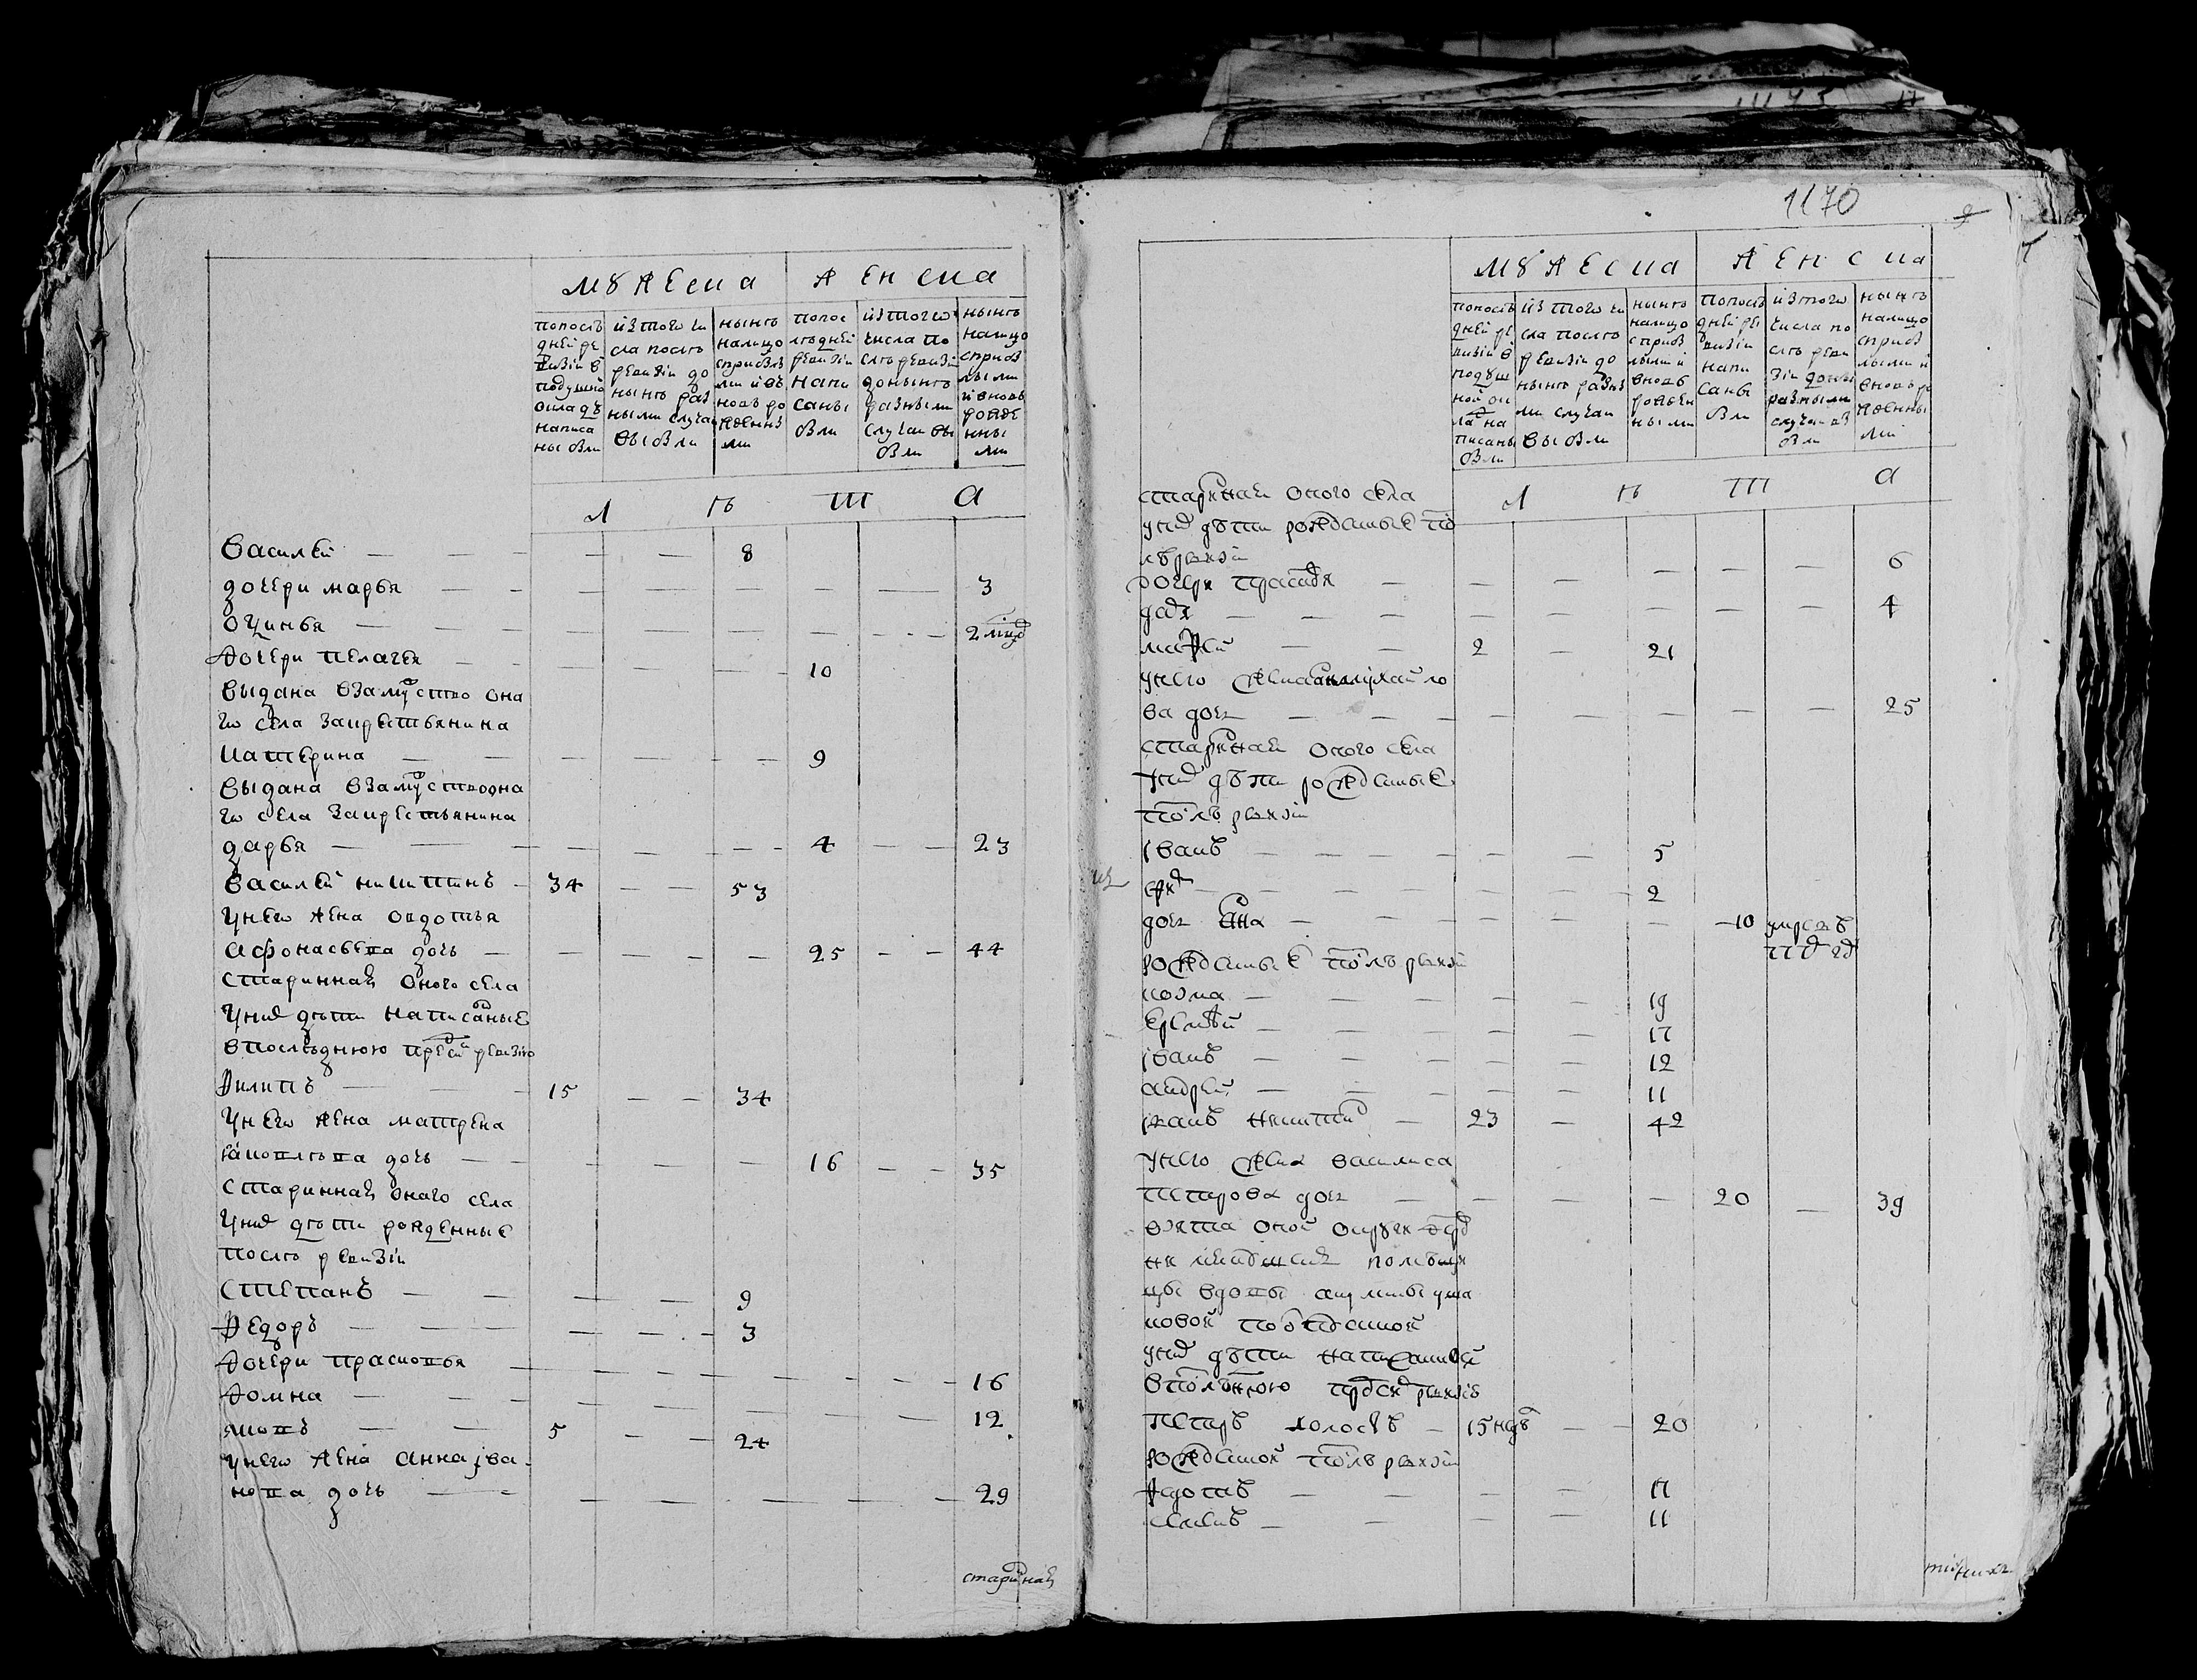 мꙋжеска женска
попослѣдней ревизiи в подушной окладъ написаны были
изтого числа послѣ ревизiи донынѣ разными случаи выбыли
нынѣ налицо сприбылыми ивъновь рожденными
попослѣдней ревизiи написаны были
изтого числа послѣ ревизiи доныне разными случаи выбыли
нынѣ налицо сприбылыми ивновь рожденными
л ѣ т а
Василей — — — — — 8
дочери марья — — — — — — — 3
Оѱинья — — — — — — — 2 
дочери пелагея — — — — — 10
выдана взамуство она
го села закрестьянина
катерина — — — — — 9
выдана взамуство она
го села закрестьянина
дарья — — — — — 4 — — 23
Василей никитинъ — 34 — — 53
унего жена овдотья
афонасьева дочь — — — — — 25 — — 44
старинная оного села
унихъ дѣти написаные
впослѣднюю пред сим ревизию
Филипъ — — — 15 — — 34
унего жена матрена
яковлѣва дочь — — — — — 16 — — 35
старинная онаго села
унихъ дѣти рожденные
послѣ ревизiи
Степанъ — — — — 9
Федоръ — — — — — 3
дочери прасковья — — — — — — — 16
домна — — — — — — — 12
яковъ — — 5 — — 24
унего жена анна iва
нова дочь — — — — — — — 29
старинная
1170
9
мꙋжеска женска
попослѣдней ревизiи в подушной окладъ написаны были
изтого числа послѣ ревизiи донынѣ разными случаи выбыли
нынѣ налицо сприбылыми i вновь рожденными
попослѣдней ревизiи написаны были
изтого числа послѣ ревизiи доныне разными случаи выбыли
нынѣ налицо сприбылыми и вновь рожденными
л ѣ т а
старинная оного села
уних дѣти рожденые по
слѣ ревизiи
дочери — — — — — — — 6
дарья — — — — — — — 4
2 — 21
унего жена михайло
ва дочь — — — — — — — — 25
старинная оного села
уних дѣти рожденые
послѣ ревизiи
iванъ — — — — — — 5
— — — — — — 2
дочь анна — — — — — — 10 умре въ
рожденые послѣ ревизiи
козма — — — — — 19
ермолай — — — — — 17
iванъ — — — — — 12
андрей — — — — — 11
iванъ никитин — 23 — 42
унего жена василиса
петрова дочь — — — — 20 — 39
взята оной округи дерев
ни помѣщи
цы вдовы акулины
новой
уних дѣти написаные
впослѣднюю пред сим ревизию
петръ холостъ — 15 недѣль — — 20
рожденой послѣ ревизiи
федотъ — — — — 17
— — — — 11